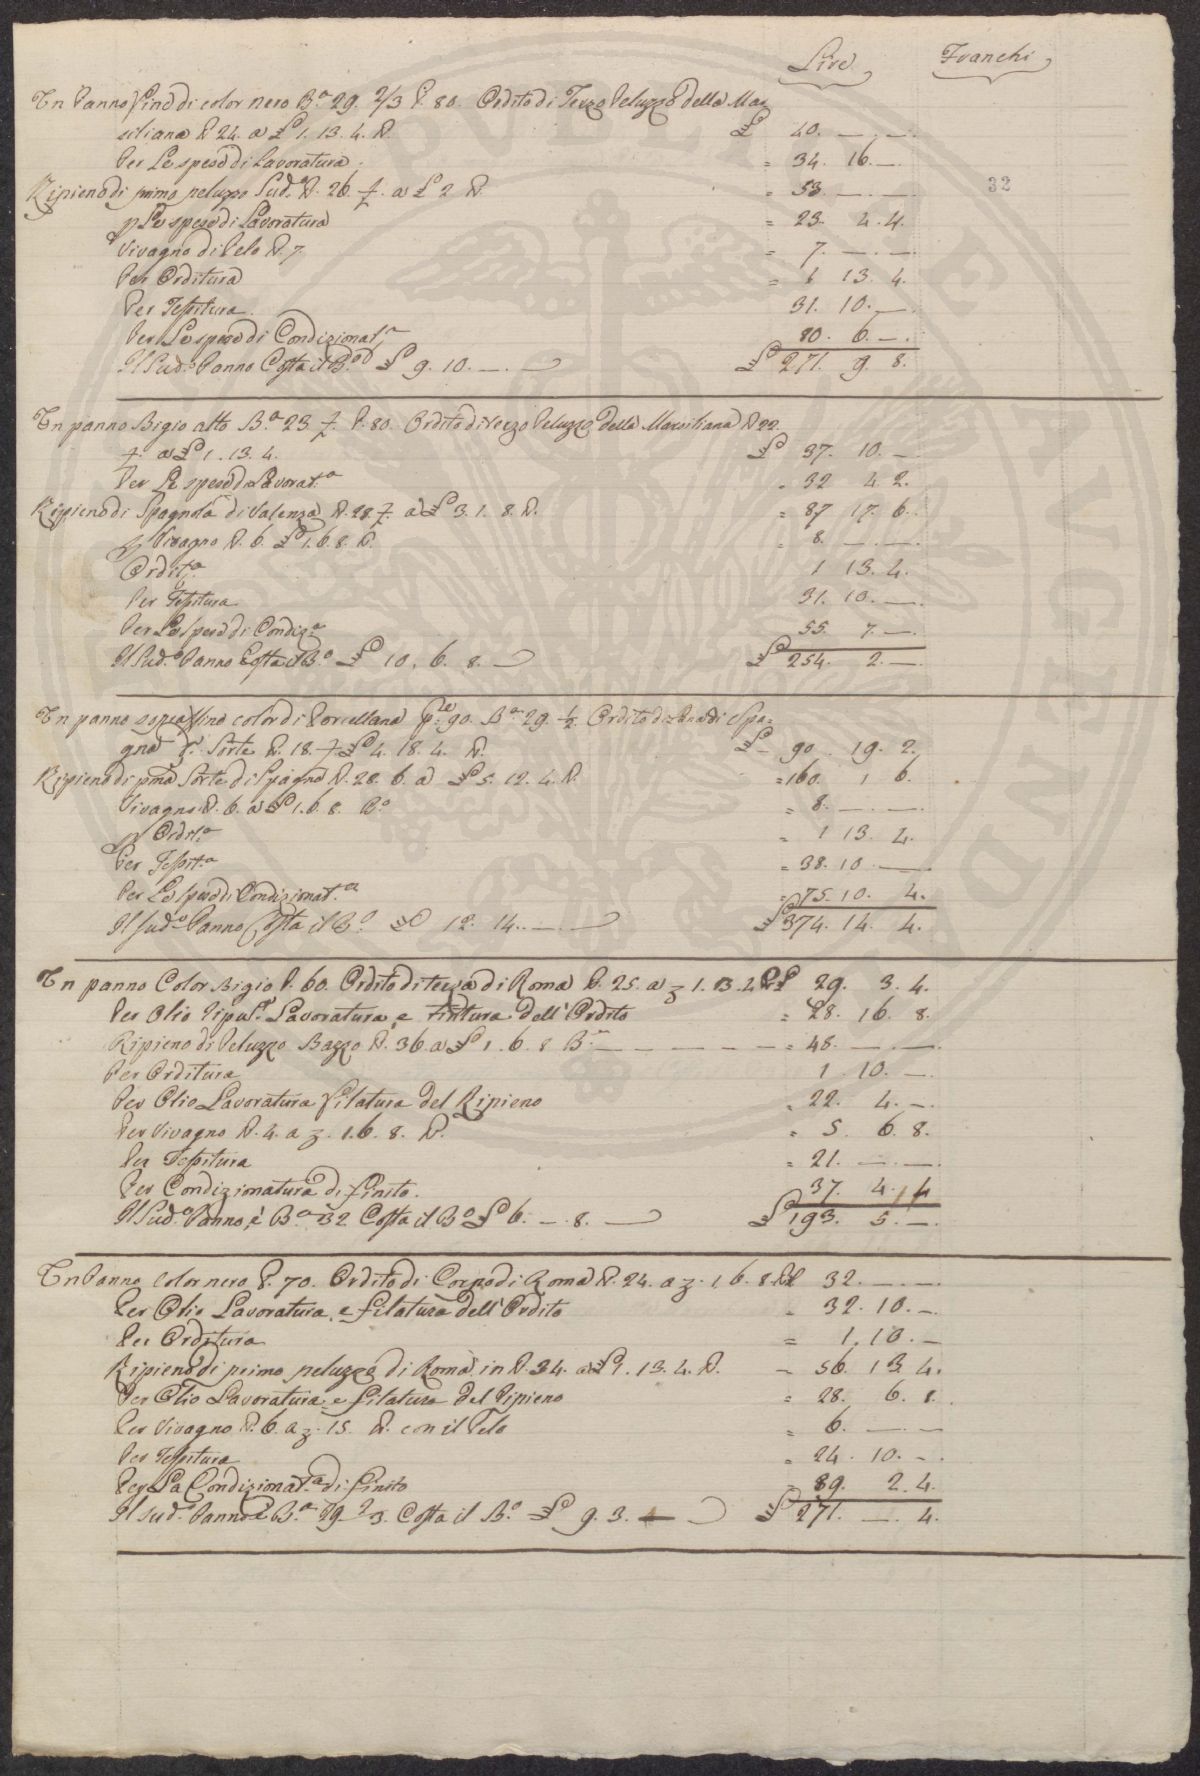 Lire Franchi
Un Panno fino di color nero B.a 29. 2/3 P. 80. Ordito di Terzo Peluzzo della Mar
siliana £ 24. a £ 1. 13. 4. £. 40. — . — .
Per Le spese di Lavoratura = 34. 16. —
Ripieno di primo peluzzo Sud.o 26 a £ 2 = 53. — . — 32
p Le spese di Lavoratura = 23. 4. 4.
Vivagno di Pelo 7. = 7. — . — .
Per Orditura = 1 13. 4.
Per Tessitura. 31. 10. —
Per Le spese di Condizionat.a 80. 6. — .
Il Sud.o Panno Costa il B.o £ 9. 10. — . — £ 271. 9. 8.
Un panno Bigio alto B.a 23 P. 80. Ordito di terzo Peluzzo della Marsiliana 22
a £ 1. 13. 4. £ 37. 10. —
Per Le spese di Lavorat.a = 32 4. 2.
Ripieno di Spagnola di Valenza 28 a £ 3. 1. 8. = 87 17. 6.
p Vivagno 6. £ 1. 6. 8. = 8. — . — .
Ordit.a 1 13. 4.
Per Tessitura 31. 10. —
Per Le spese di Condiz.a 55. 7. —
Il Sud.o Panno Costa il B.o £ 10. 6. 8. £ 254. 2. —
Un panno sopraffino color di Porcellana p.te 90. B.a 29. 1/2 Ordito di Lana di Spa=
gna p. Sorte 18. £ 4. 18. 4. £ 90. 19. 2.
Ripieno di p.ma Sorte di Spagna 28. 6. a £ 5. 12. 4. = 160. 1 6.
Vivagno 6. a £ 1. 6. 8. = 8. — . —
p Ordit.a = 1 13. 4.
Per Tessit.a = 38. 10 —
Per Le spese di Condizionat.a = 75. 10. 4.
Il sud.o Panno Costa il B.o £ 12. 14. — £ 374. 14. 4.
Un panno Color Bigio P. 60. Ordito di terza di Roma 25. a z 1. 3. 4 £ 29. 3. 4.
Per Olio Lavoratura, e tintura dell'Ordito = 28. 16. 8.
Ripieno di Peluzzo Bazzo 36 a £ 1. 6. 8 — — — — — = 48. — . — .
Per Orditura 1. 10. —
Per Olio Lavoratura filatura del Ripieno = 22. 4. — .
Per Vivagno 4. a z. 1. 6. 8. = 5. 6. 8.
Per Tessitura = 21. — . — .
Per Condizionatura di finito. 37. 4. 4
Il Sud.o Panno, è B.a 32 Costa il B.o £ 6. — . 8. — £ 193. 5. — .
Un Panno Color nero P. 70. Ordito di Corpo di Roma 24. a z. 1. 6. 8 £ 32. — . — .
Per Olio Lavoratura, e filatura dell'Ordito = 32. 10. — .
Per Orditura = 1. 10. —
Ripieno di primo peluzzo di Roma in 34. a £ 1. 13. 4. = 56. 13 4.
Per Olio Lavoratura e filatura del Ripieno = 28. 6. 8.
Per Vivagno 6. a z. 15. con il Pelo = 6. — . —
Per Tessitura = 24. 10. — .
Per La Condizionat.a di finito = 89. 2. 4.
Il sud.o Panno è B.a 29 2/3. Costa il B.o £ 9. 3. — £ 271. — . 4.